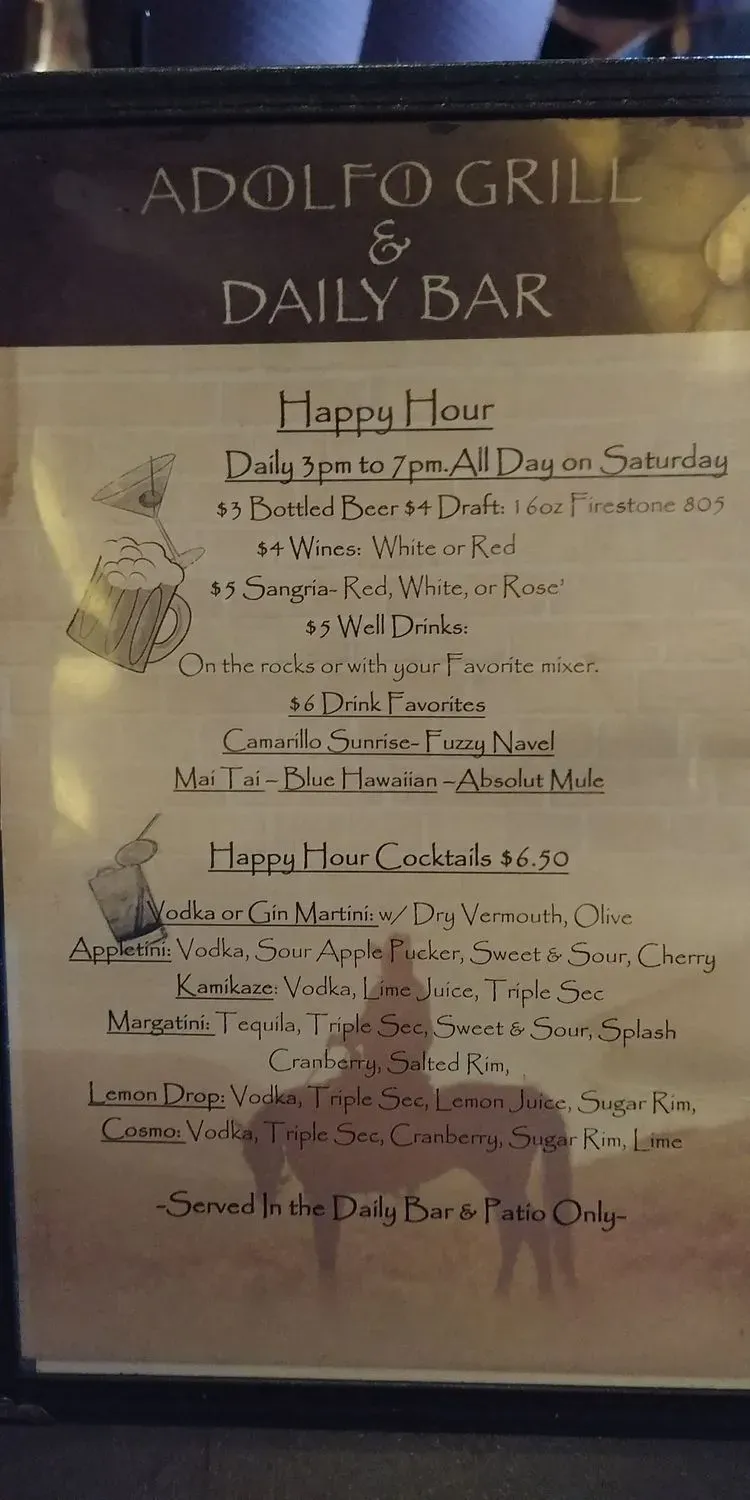 ADOLFO GRILL
&
DAILY BAR
Happy Hour
Daily 3pm to 7pm.All Day on Saturday
$3 Bottled Beer $4 Draft: 16oz Firestone 805
$4 Wines: White or Red
$5 Sangria- Red, White, or Rose'
$5 Well Drinks:
On the rocks or with your Favorite mixer.
$6 Drink Favorites
Camarillo Sunrise- Fuzzy Navel
Mai Tai – Blue Hawaiian –Absolut Mule
Happy Hour Cocktails $6.50
Vodka or Gin Martini: w/ Dry Vermouth, Olive
Appletini: Vodka, Sour Apple Pucker, Sweet & Sour, Cherry
Kamikaze: Vodka, Lime Juice, Triple Sec
Margatini: Tequila, Triple Sec, Sweet & Sour, Splash
Cranberry, Salted Rim,
Lemon Drop: Vodka, Triple Sec, Lemon Juice, Sugar Rim,
Cosmo: Vodka, Triple Sec, Cranberry, Sugar Rim, Lime
-Served In the Daily Bar & Patio Only-